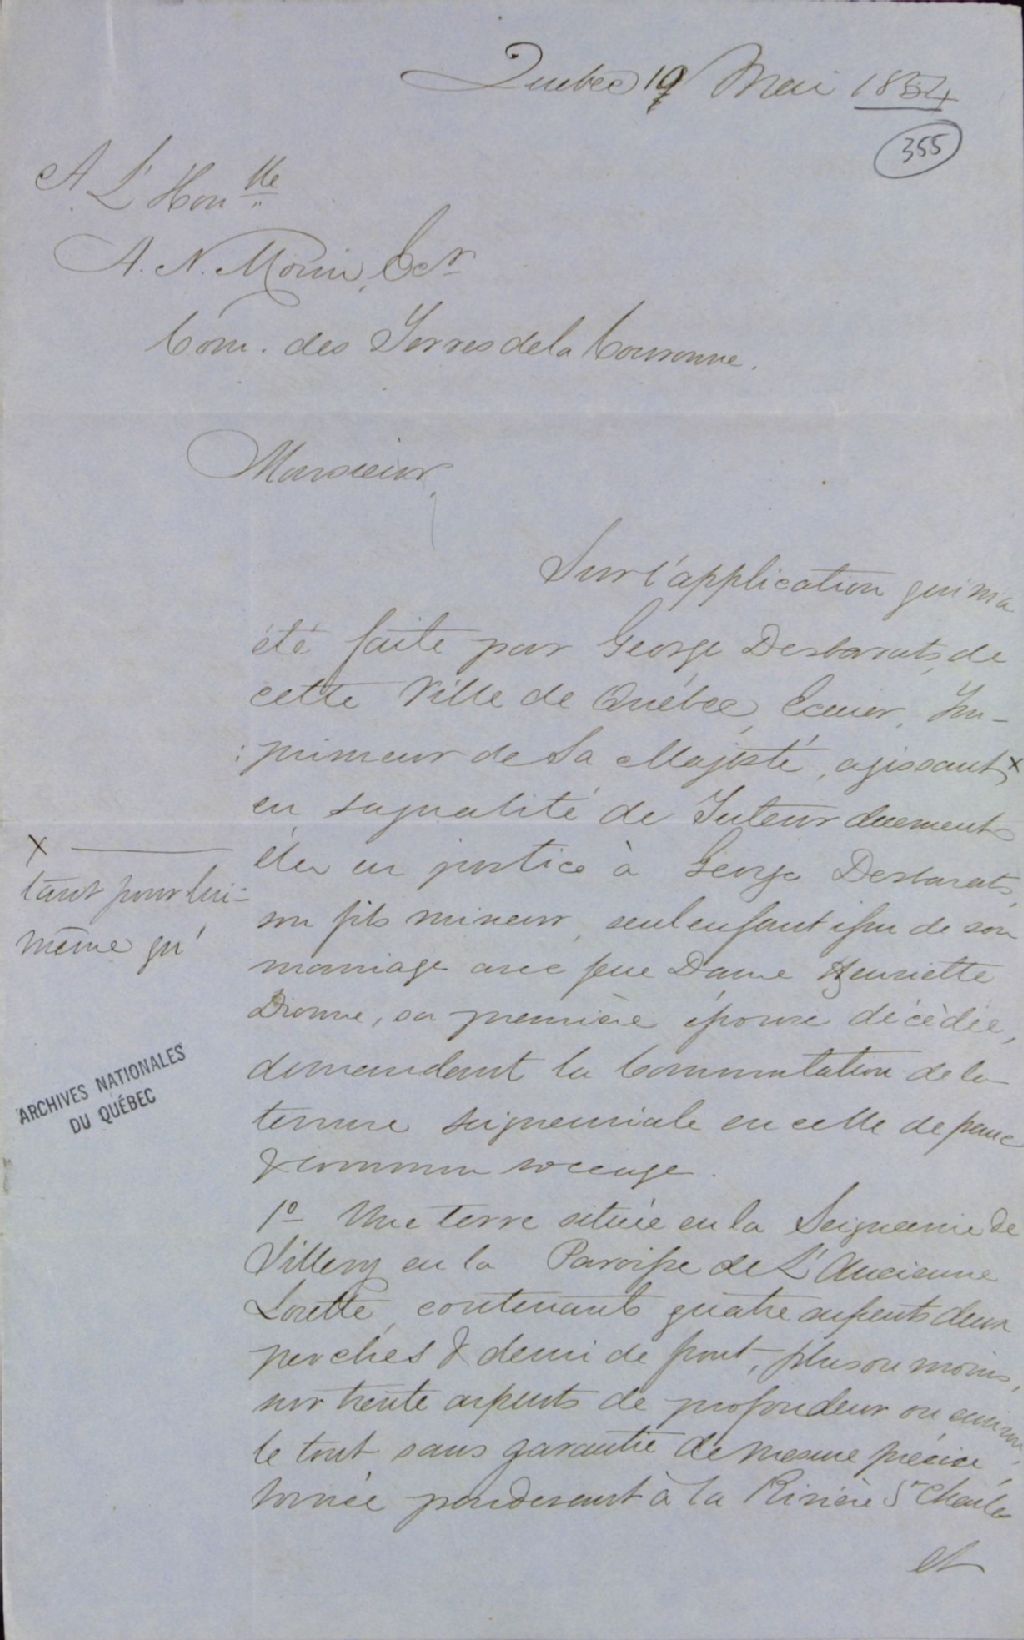 Quebec 19 Mai 1854
355
A L'Honble
A. N. Morin, Ecr
Com. des Terres de la Couronne.
Monsieur,
Sur l'application qui m'a
été faite par George Desbarats, de
cette Ville de Québec, Ecuier, Im-
:primeur de Sa Majesté, agissant x
en sa qualité de Tuteur duement
élu en justice à George Desbarats,
son fils mineur, seul enfant issu de son
marriage avec feue Dame Henriette
Dionne, sa première épouse décédée,
demandant la Commutation de la
tenure seigneuriale en celle de franc
& commun soccage.
x
tant pour lui-
même qu'
ARCHIVES NATIONALES
DU QUÉBEC
1o Une terre située en la Seigneurie de
Sillery en la Paroisse de L'Ancienne
Lorette, contenant quatre arpents deux
perches & demi de front, plus ou moins,
sur trente arpents de profondeur ou environ,
le tout sans garantie de mesure précise,
bornée par devant à la Rivière St Charles
et